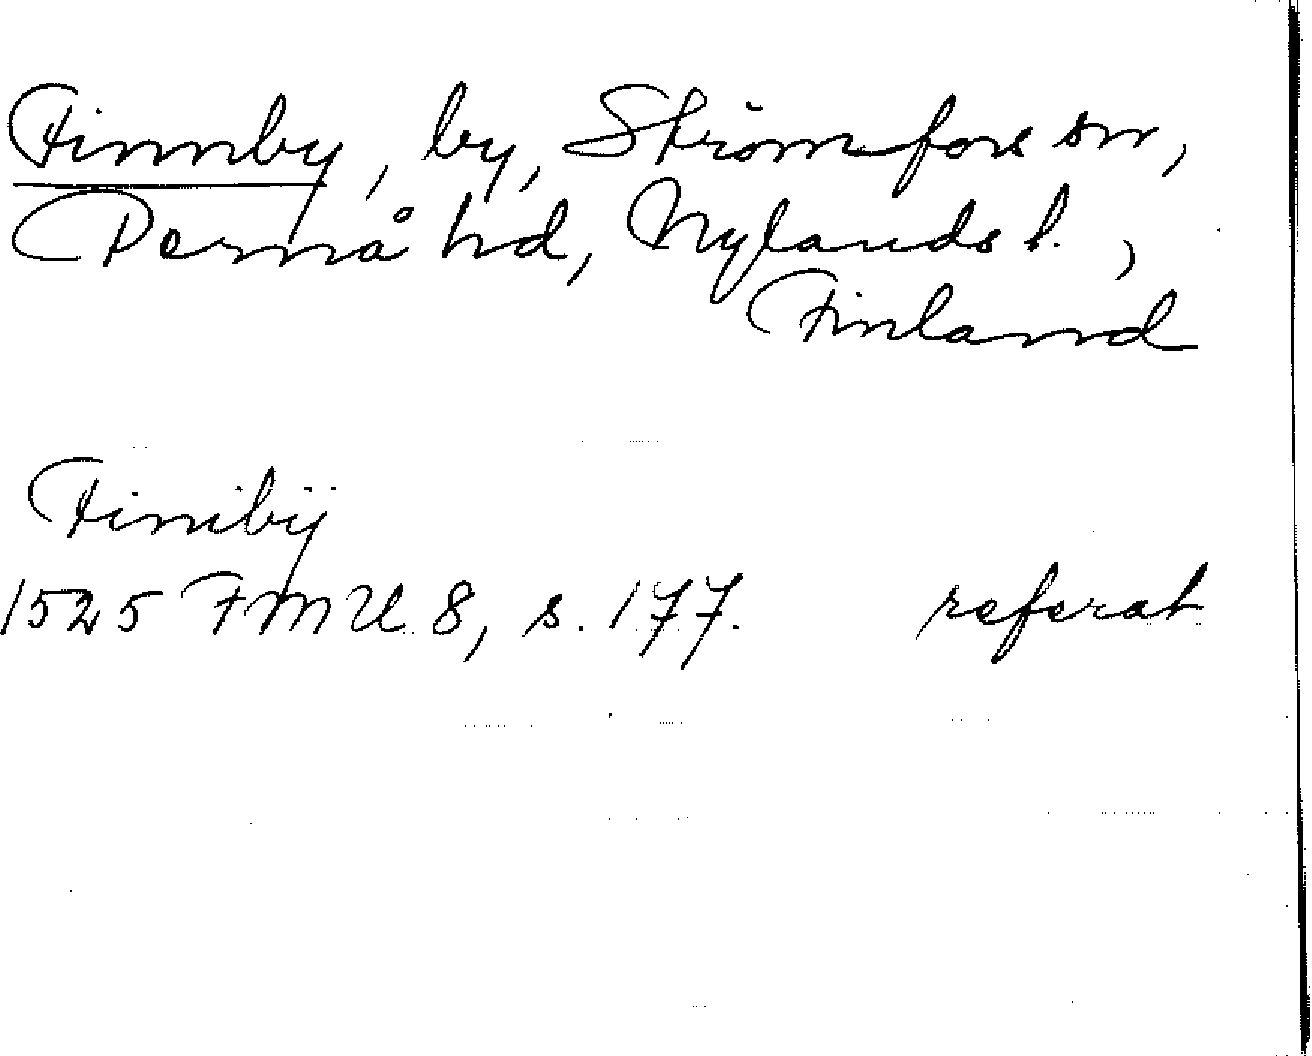 Finnby, by, Strömfors sn,
Pernå hd, Nylands l.,
Finland
Finnibÿ
1525 FMU 8, s. 177. referat